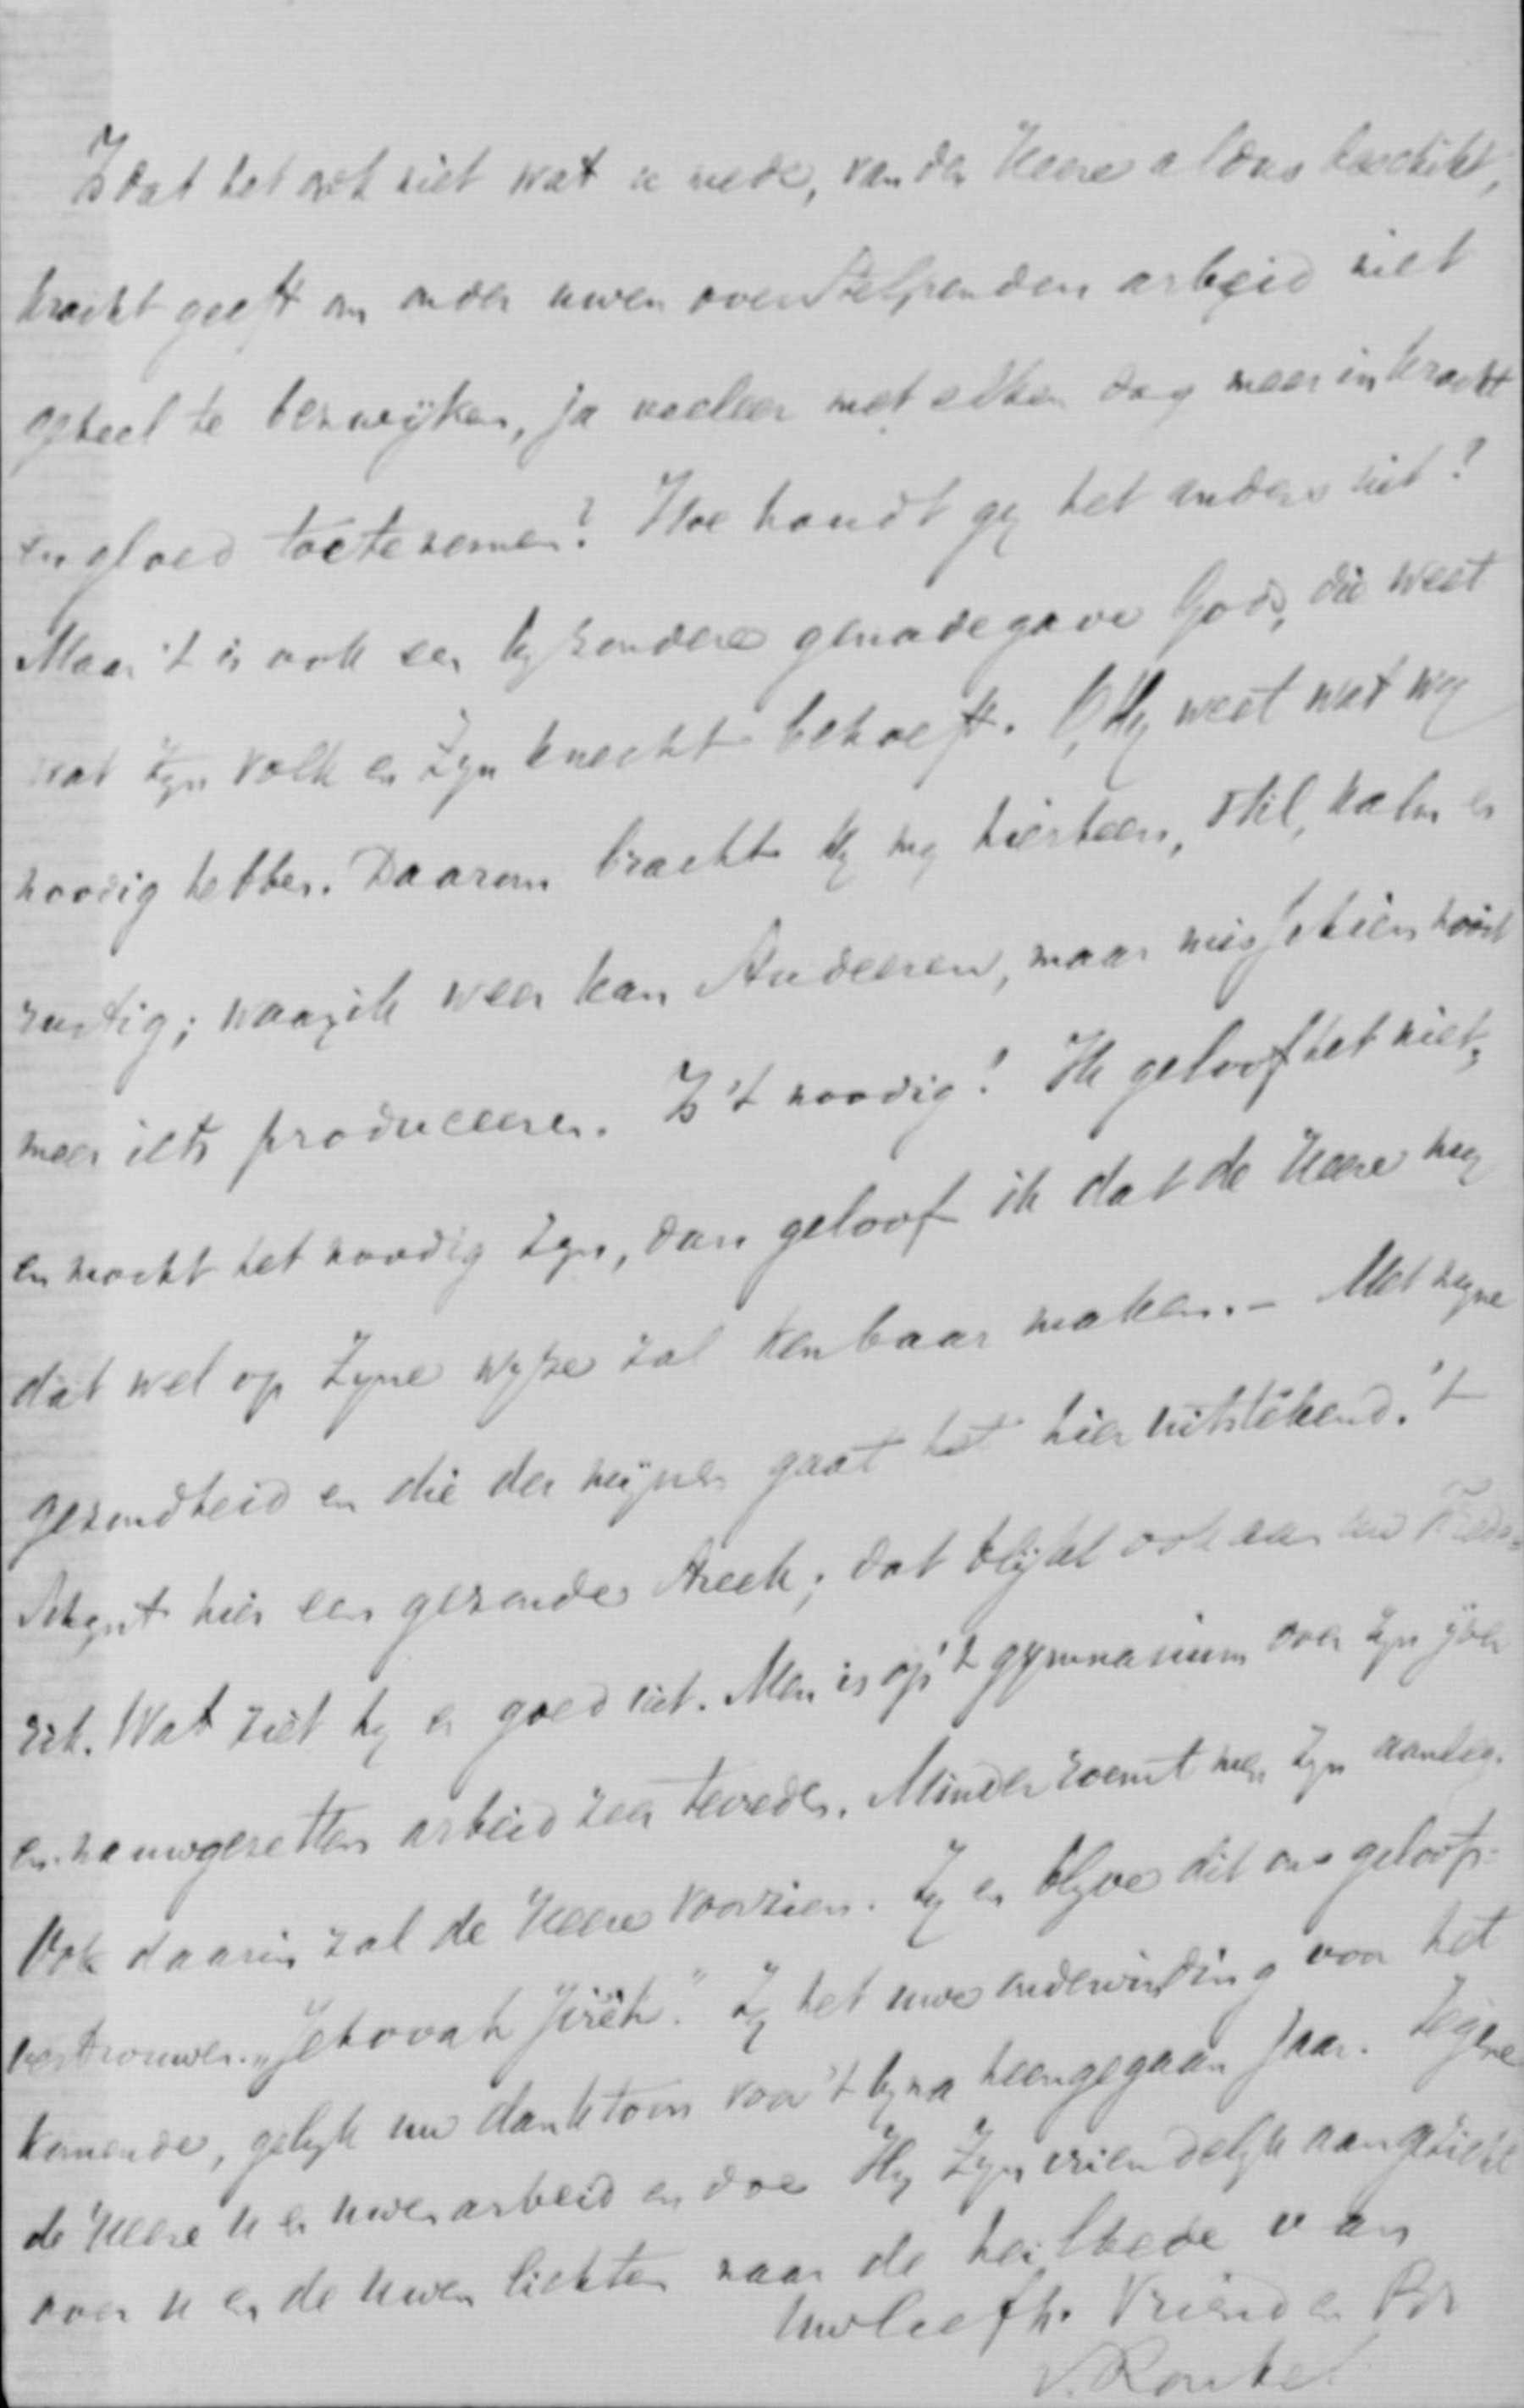 Is dat het ook niet wat u mede, van den Heere aldus beschikt,
kracht geeft om onder uwen overstelpenden arbeid niet
geheel te bezwijken, ja veeleer met elken dag meer in kracht
en gloed toetenemen? Hoe houdt gy het anders uit?
Maar 't is ook een byzondere genadegave Gods, die weet
wat Zyn volk en Zyn knecht behoeft. O, Hy weet wat wy
noodig hebben. Daarom bracht Hy my hierheen, stil, kalm en
rustig; waar ik weer kan studeeren, maar misschien nooit
meer iets produceeren. Is 't noodig? Ik geloof het niet,
en mocht het noodig zyn, dan geloof ik dat de Heere my
dat wel op Zyne wyze zal kenbaar maken. – Met myne
gezondheid en die der mijnen gaat het hier uitstekend. 't
Schynt hier een gezonde streek; dat blijkt ook aan uw
rik. Wat ziet hy er goed uit. Men is op 't gymnasium over zyn yver
en nauwgezetten arbeid zeer tevreden. Minder roemt men zyn aanleg.
Ook daarin zal de Heere voorzien. Zy en blyve dit ons geloofs-
vertrouwen. „Jehovah Jireh." Zy het uwe ondervinding voor het
komende, gelyk uw danktoon voor 't byna heengegaan jaar. Zegene
de Heere u en uwen arbeid en doe Hy Zyn vriendelyk aangezicht
over u en de uwen lichten naar de heilbede van
Uw liefh. Vriend en Br
v. Ronkel